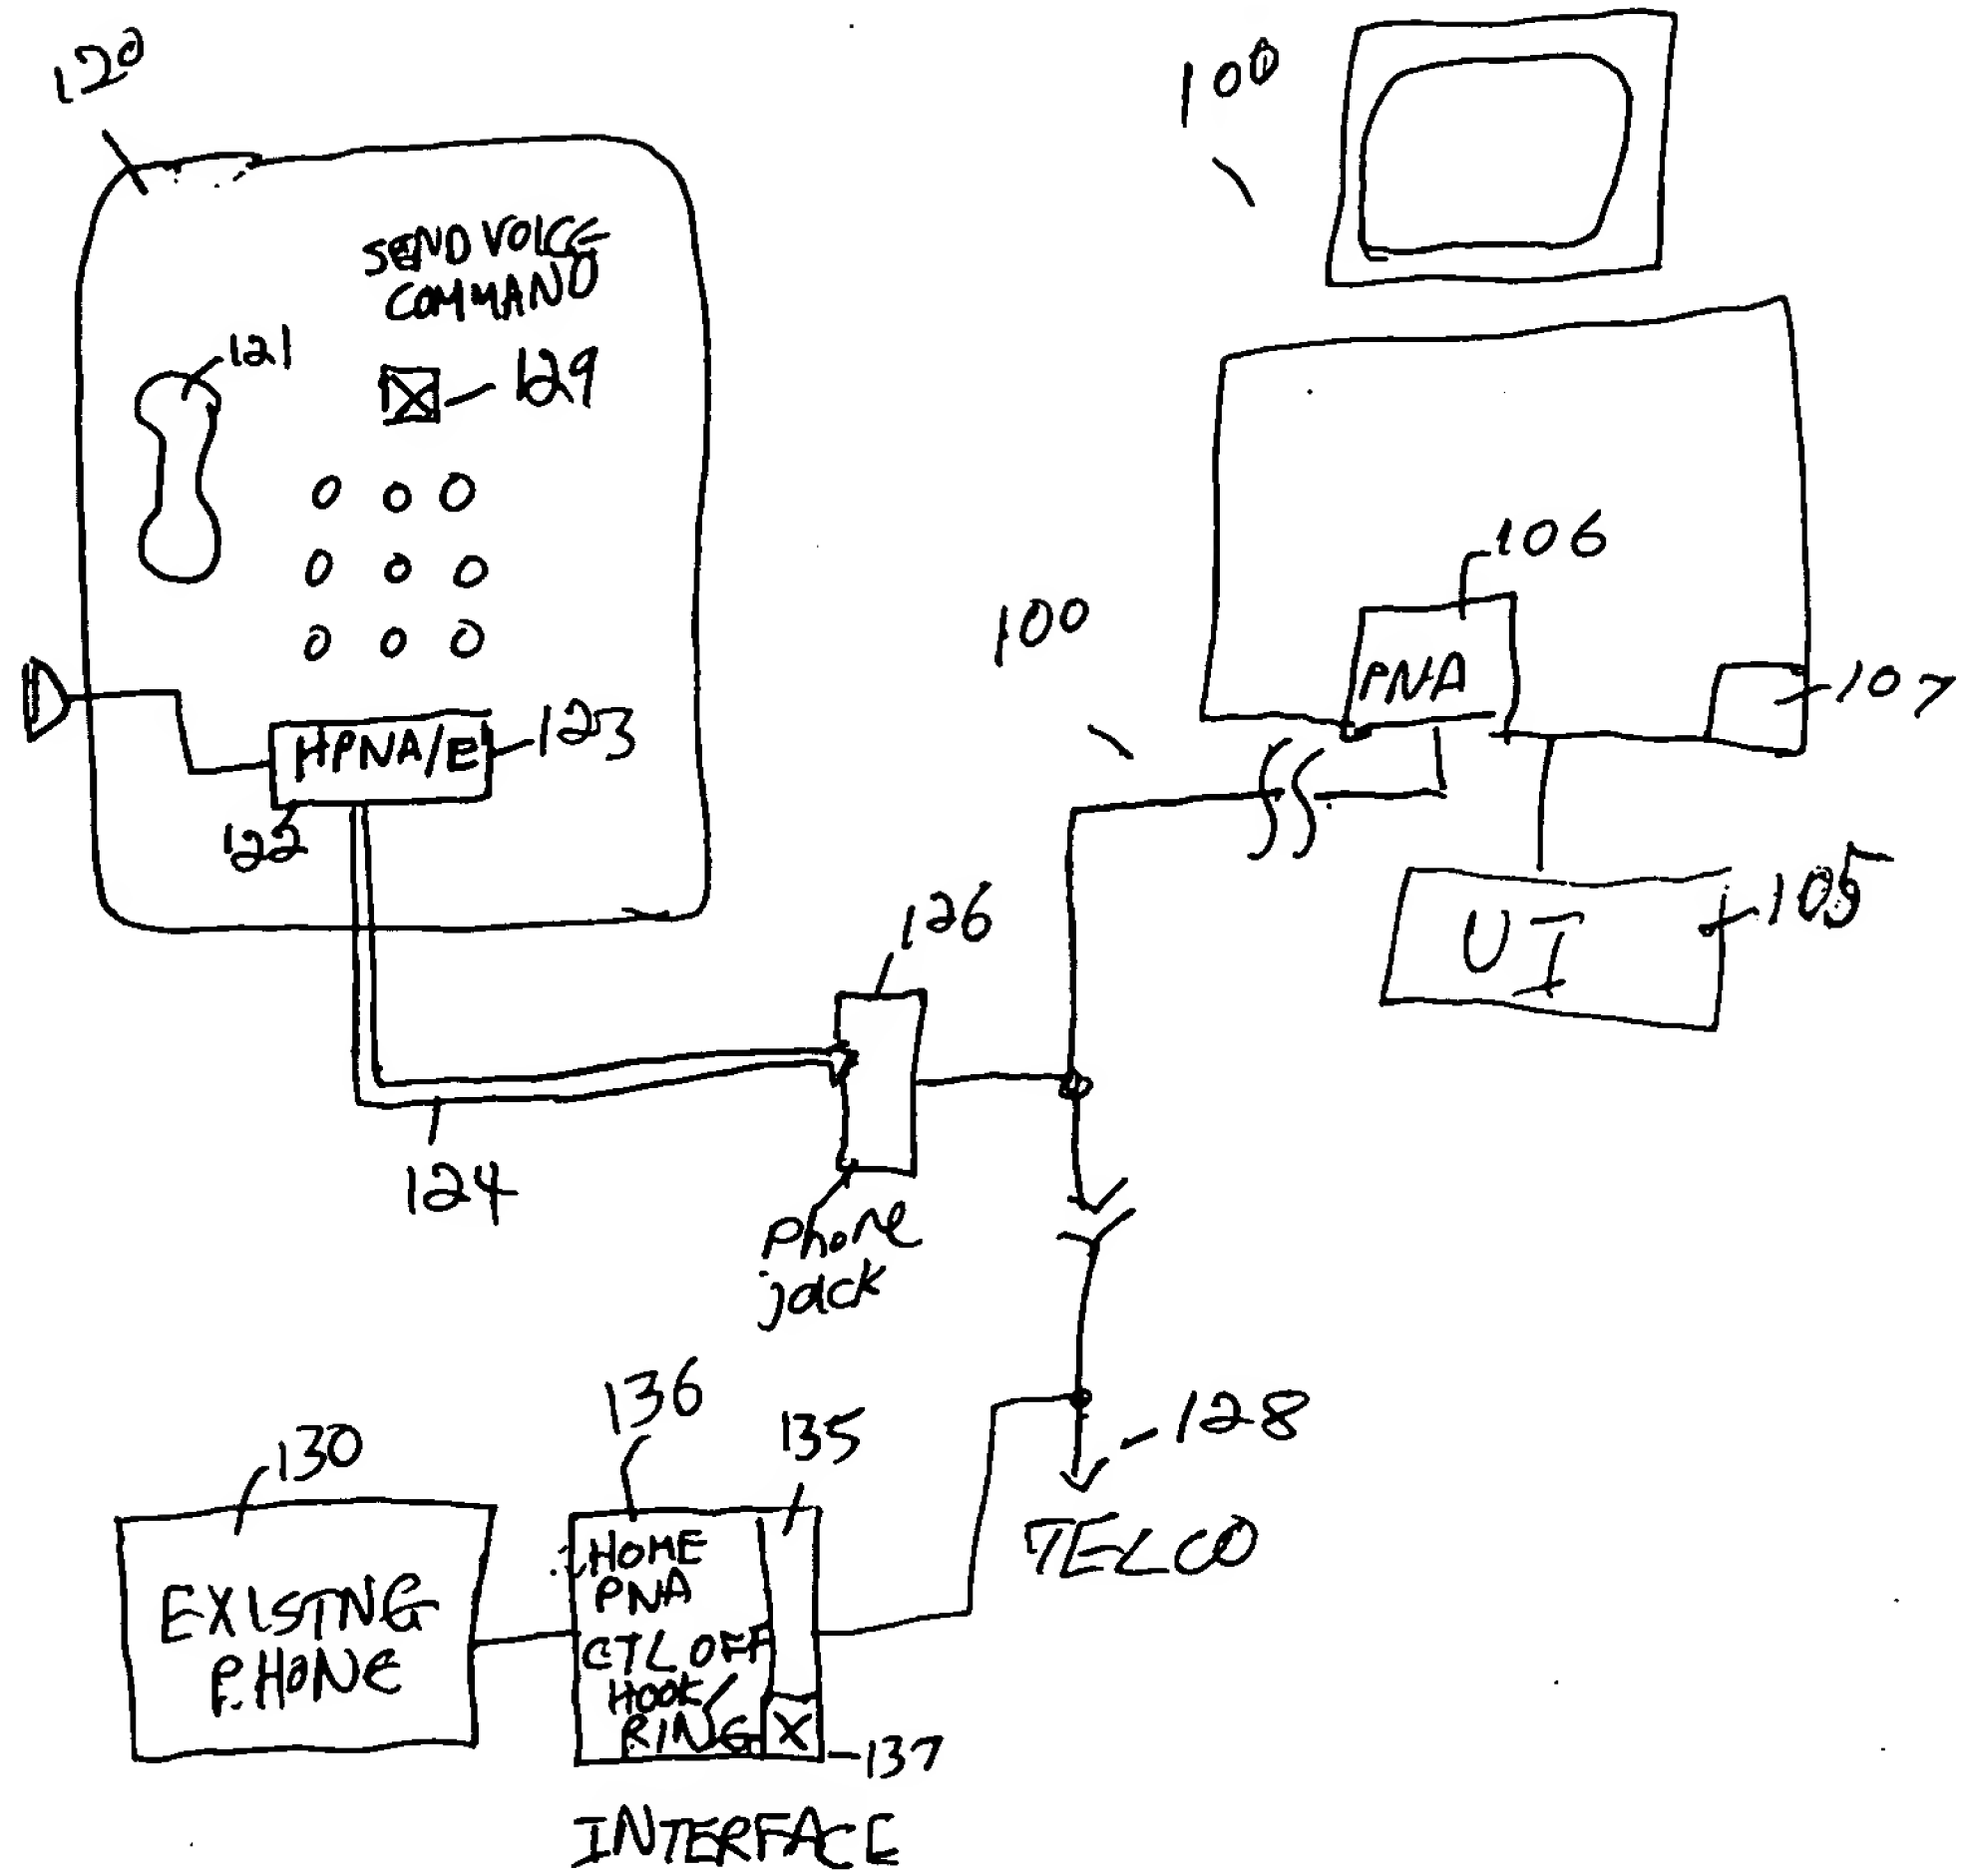 120
100
SEND VOICE
COMMAND
121
129
106
100
PNA
107
HPNA/E
123
122
105
UI
126
124
Phone
jack
136
135
128
130
TELCO
HOME
PNA
EXISTNG
PHONE
CTL OFF
HOOK/
RING
X
137
INTERFACE